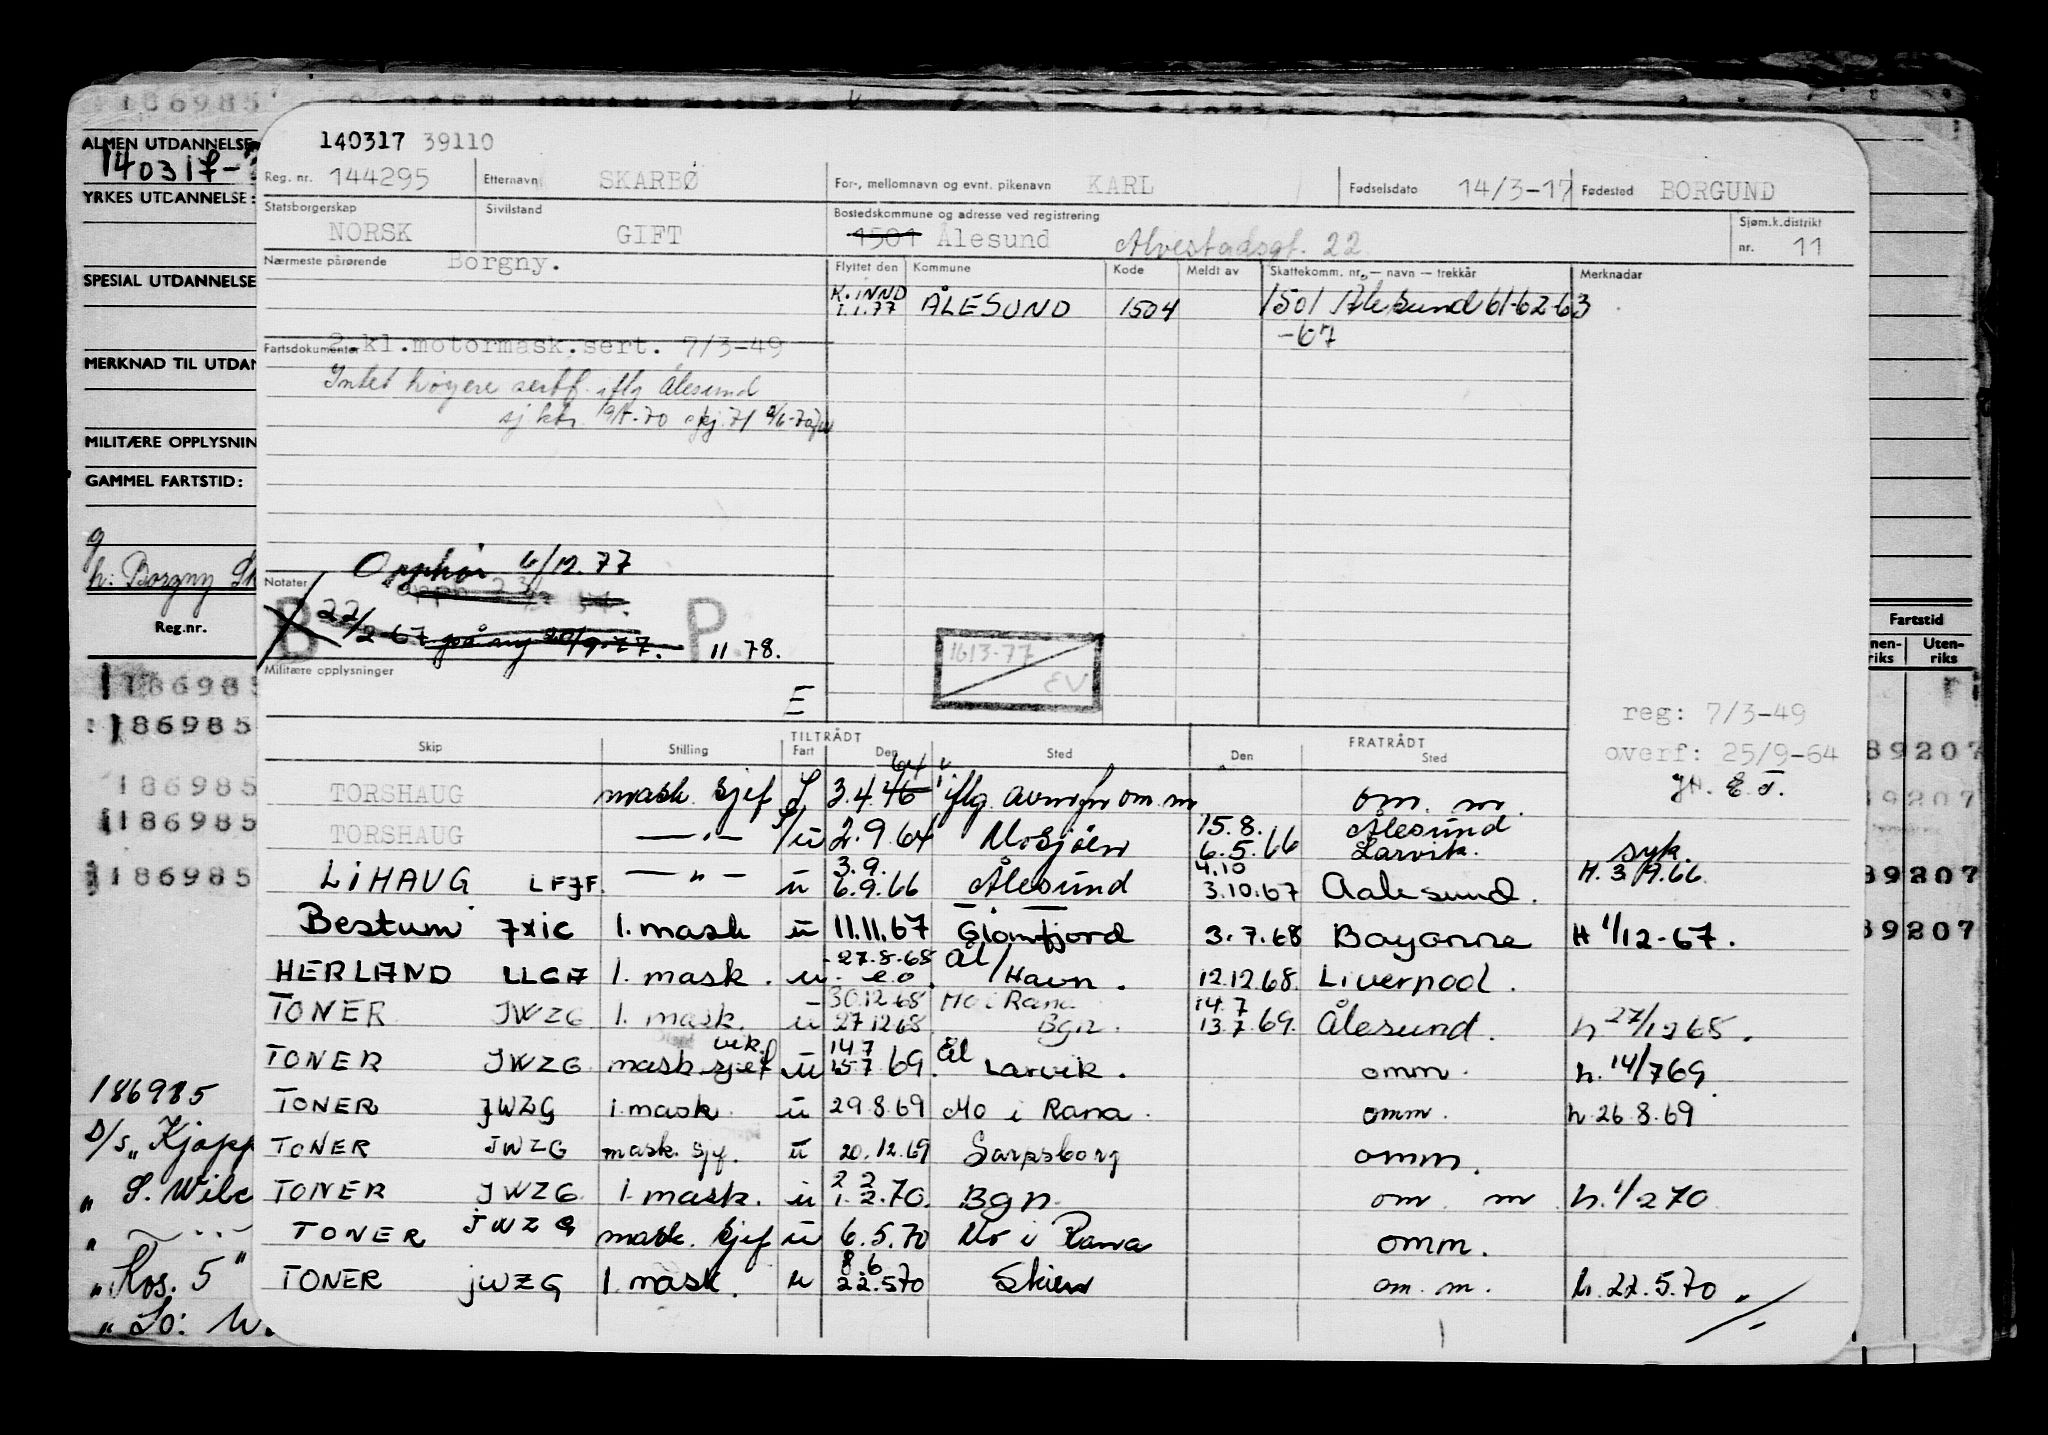 186985
ALMEN UTDANNELSE
140317-
YRKES UTDANNELSE:
SPESIAL UTDANNELSE
MERKNAD TIL UTDAN
MILITÆRE OPPLYSNIN
GAMMEL FARTSTID:
g
h: Borgny Sk
Reg.nr.
186985
186985
186985
186985
186985
186985
D/s „Kjøpp
„ S. Wilc
„ — ... —
„Kos. 5"
140317 39110
Reg. nr. 144295 Etternavn SKARBØ For-, mellomnavn og evnt. pikenavn KARL Fødselsdato 14/3-17 Fødested BORGUND
Statsborgerskap NORSK Sivilstand GIFT Bostedskommune og adresse ved registrering 1501 Ålesund Alvestadsgt. 22 Sjøm.k.distrikt nr. 11
Nærmeste pårørende Borgny. Flyttet den Kommune Kode Meldt av Skattekomm. nr. — navn — trekkår Merknader
K. INND 1.1.77 ÅLESUND 1504 1501 Ålesund 61-62-63
-67
Fartsdokumenter 2.kl.motormask.sert. 7/3-49
Intet høyere sertf. iflg Ålesund
Opphør 6/12.77
Notater
B 22/2-67 på ny 20/9-77. P 11 78.
1613-77
EV
Militære opplysninger
E
reg: 7/3-49
overf: 25/9-64
TILTRÅDT FRATRÅDT
Skip Stilling Fart Den Sted Den Sted
TORSHAUG mask sjef 3.4.46 64 iflg. om. m
TORSHAUG — " — u 2.9.64 Mosjøen 15.8. 6.5.66 Ålesund Larvik. syk.
LIHAUG LFJF. — " — u 3.9. 6.9.66 Ålesund 4.10 3.10.67 Aalesund. H. 3/9.66
Bestum JXIC 1. mask u 11.11.67 Glomfjord 3.7.68 Bayonne H 1/12-67.
HERLAND LLGA 1. mask. u 27.8.68 e.o. Ål/Havn. 12.12.68. Liverpool.
TONER JWZG 1. mask. u 30.12.68 27.12.68 Mo i Rana Bgn. 14.7 13.7.69. Ålesund. h 27/12 68.
TONER JWZG mask.sjef vik. u 14.7 15.7.69. Ål Larvik. omm. h. 14/7 69.
TONER JWZG 1. mask. u 29.8.69 Mo i Rana. omm. h 26.8.69
TONER JWZG mask. sjf. u 20.12.69 Sarpsborg omm.
TONER JWZG 1. mask. u 2 2 1.2.70. Bgn. om m h. 1/2 70
TONER JWZG mask. sjef u 6.5.70 Mo i Rana omm.
TONER JWZG 1. mask. u 8 6 22.5.70 Skien om. m. h. 22.5.70.
Fartstid
Uten-
riks
89207
89207
89207
89207